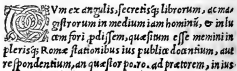 CVm ex angulis, secretisq́; librorum, ac ma⸗
gistrorum in medium iam hominũ, & in lu
cem fori, pdijssem, quæsitum esse memini in
plerisq́; Romæ stationibus ius publice docentium, aut
respondentium, an quæstor po. ro. ad prætorem, in ius